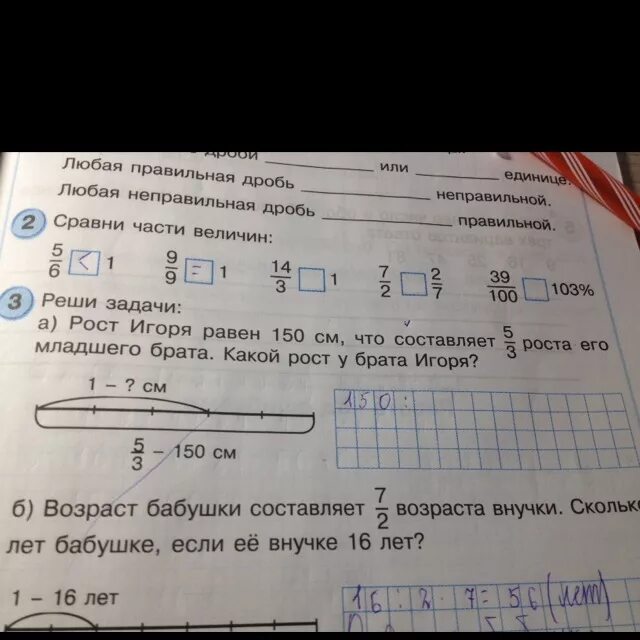 дроби ____ или ____ единице.
Любая правильная дробь ____ неправильной.
Любая неправильная дробь ____ правильной.
2 Сравни части величин:
5/6 < 1 9/9 = 1 14/3 □ 1 7/2 □ 2/7 39/100 □ 103%
3 Реши задачи:
а) Рост Игоря равен 150 см, что составляет 5/3 роста его
младшего брата. Какой рост у брата Игоря?
1 – ? см
150 :
5/3 – 150 см
б) Возраст бабушки составляет 7/2 возраста внучки. Сколько
лет бабушке, если её внучке 16 лет?
1 – 16 лет
16 : 2 · 7 = 56 (лет)